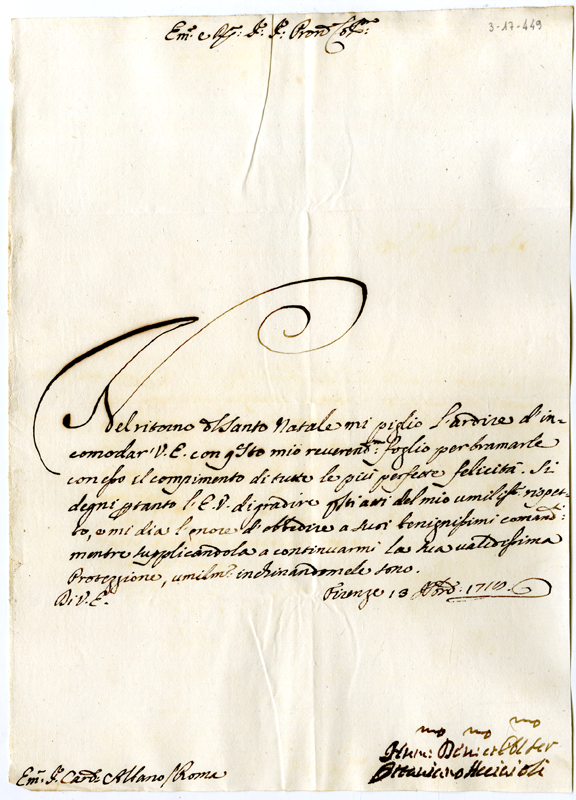 3-17-449
Em.º e R.º
Nel ritorno del Santo Natale mi piglio l'ardire d'in-
comodar V. E. con q.sto mio reverend.mo foglio per bramarle
con esso il compimento di tutte le più perfette felicità. Si
degni p tanto l'E. V. di gradire q.sti atti del mio umiliss.º rispet-
to, e mi dia l'onore d'obbedire a suoi benignissimi comand.i
mentre supplicandola a continuarmi la sua validissima
Protezzione, umilm.e inchinandomele sono.
Di V. E.
Firenze 13 Xbre 1719.
Em. S. Card. Albano / Roma